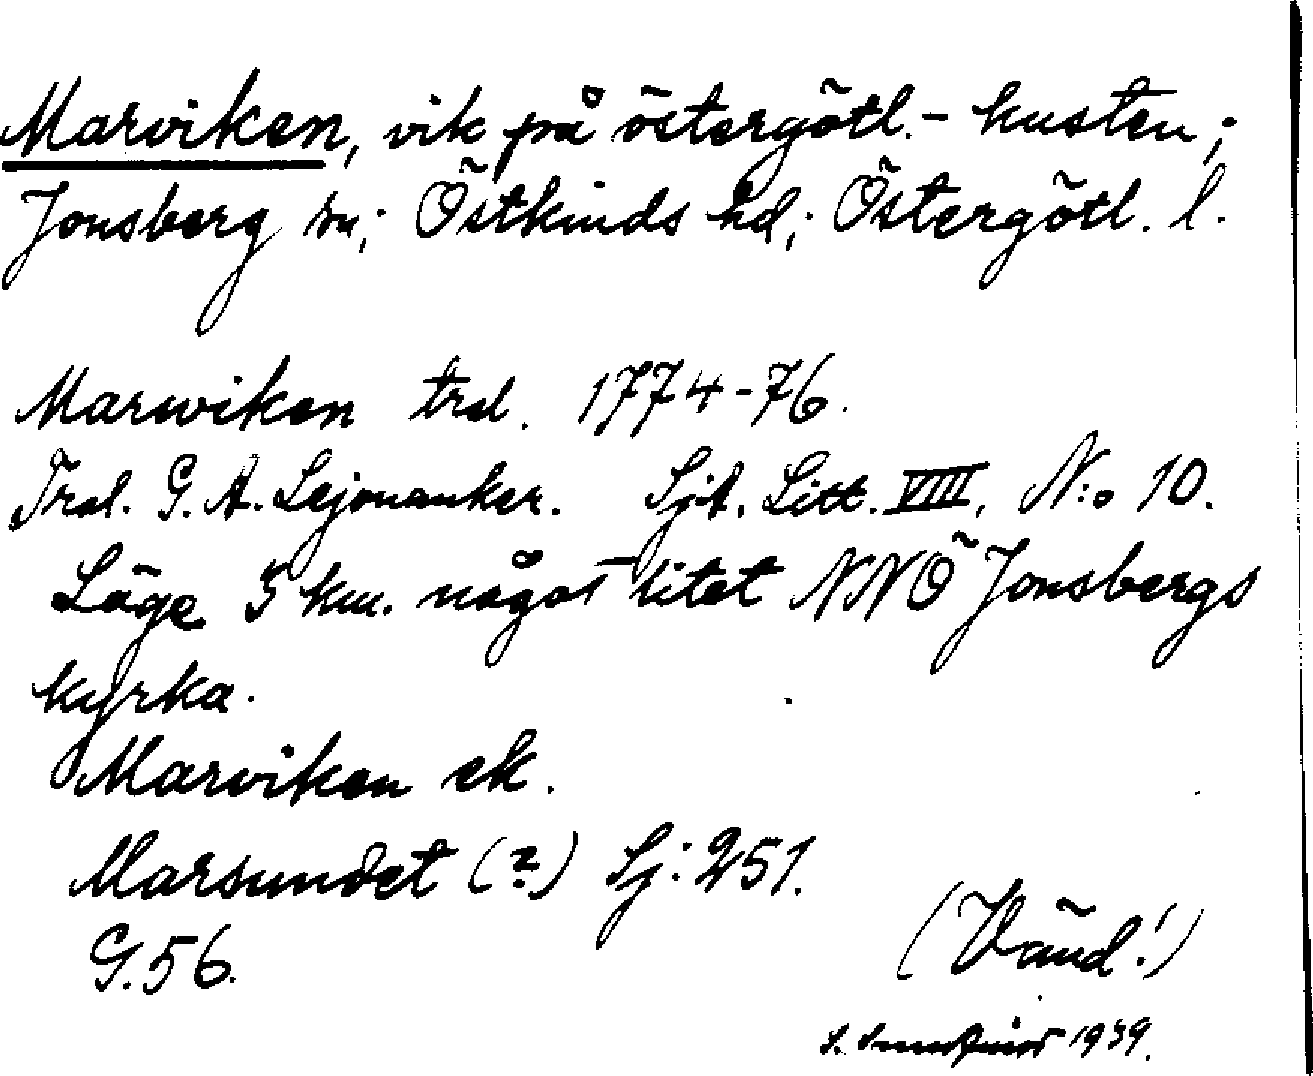 Marviken, vik på östergötl.-kusten;
Jonsberg sn; Östkinds hd; Östergötl. l.
Marwiken trol. 1774-76.
Trol. G. A. Lejonanker. Sjö. Litt. VIII. N:o 10.
Läge 5 km. något litet NNÖ Jonsbergs
kyrka.
Marviken ek.
Marsundet (?) Sj: 251.
G. 56.
(Vänd!)
S. 1939.